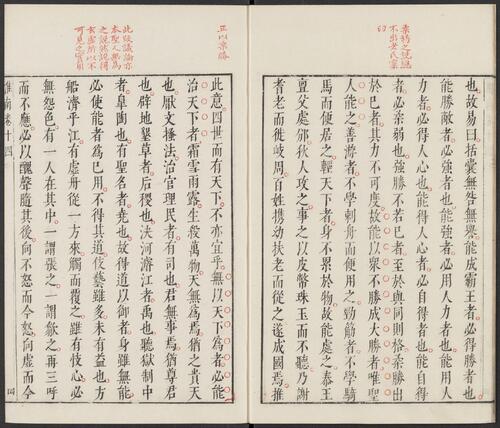 柔持之說總
不出老氏窠
臼
也故易曰括囊無咎無譽能成霸王者必得勝者也
能勝敵者必強者也能強者必用人力者也能用人
力者必得人心也能得人心者必自得者也能自得
者必柔弱也強勝不若已者至於與同則格柔勝出
於已者其力不可度故能以眾不勝成大勝者唯聖
人能之善游者不學刺舟而便用之勁䈥者不學騎
馬而便居之輕天下者身不累於物故能處之泰王
亶父處邠狄人攻之事之以皮幣珠玉而不聽乃謝
耆老而徙岐周百姓攜幼扶老而從之遂成國焉推
正以柔勝
此意四世而有天下不亦宜乎無以天下為者必能
治天下者霜雪雨露生殺萬物天無為焉猶之貴天
也厭文搔法治官理民者有司也君無事焉猶尊君
也辟地墾草者后稷也決河濬江者禹也聽獄制中
者皐陶也有聖名者堯也故得道以御者身雖無能
必使能者為已用不得其道伎藝雖多未有益也方
船濟乎江有虛舟從一方來觸而覆之雖有忮心必
無怨色有一人在其中一謂張之一謂歙之再三呼
而不應必以醜聲隨其後向不怒而今怒向虛而今
此段議論亦
本聖人無為
之說然說得
玄虛所以不
可見之實用
淮南卷十四
四